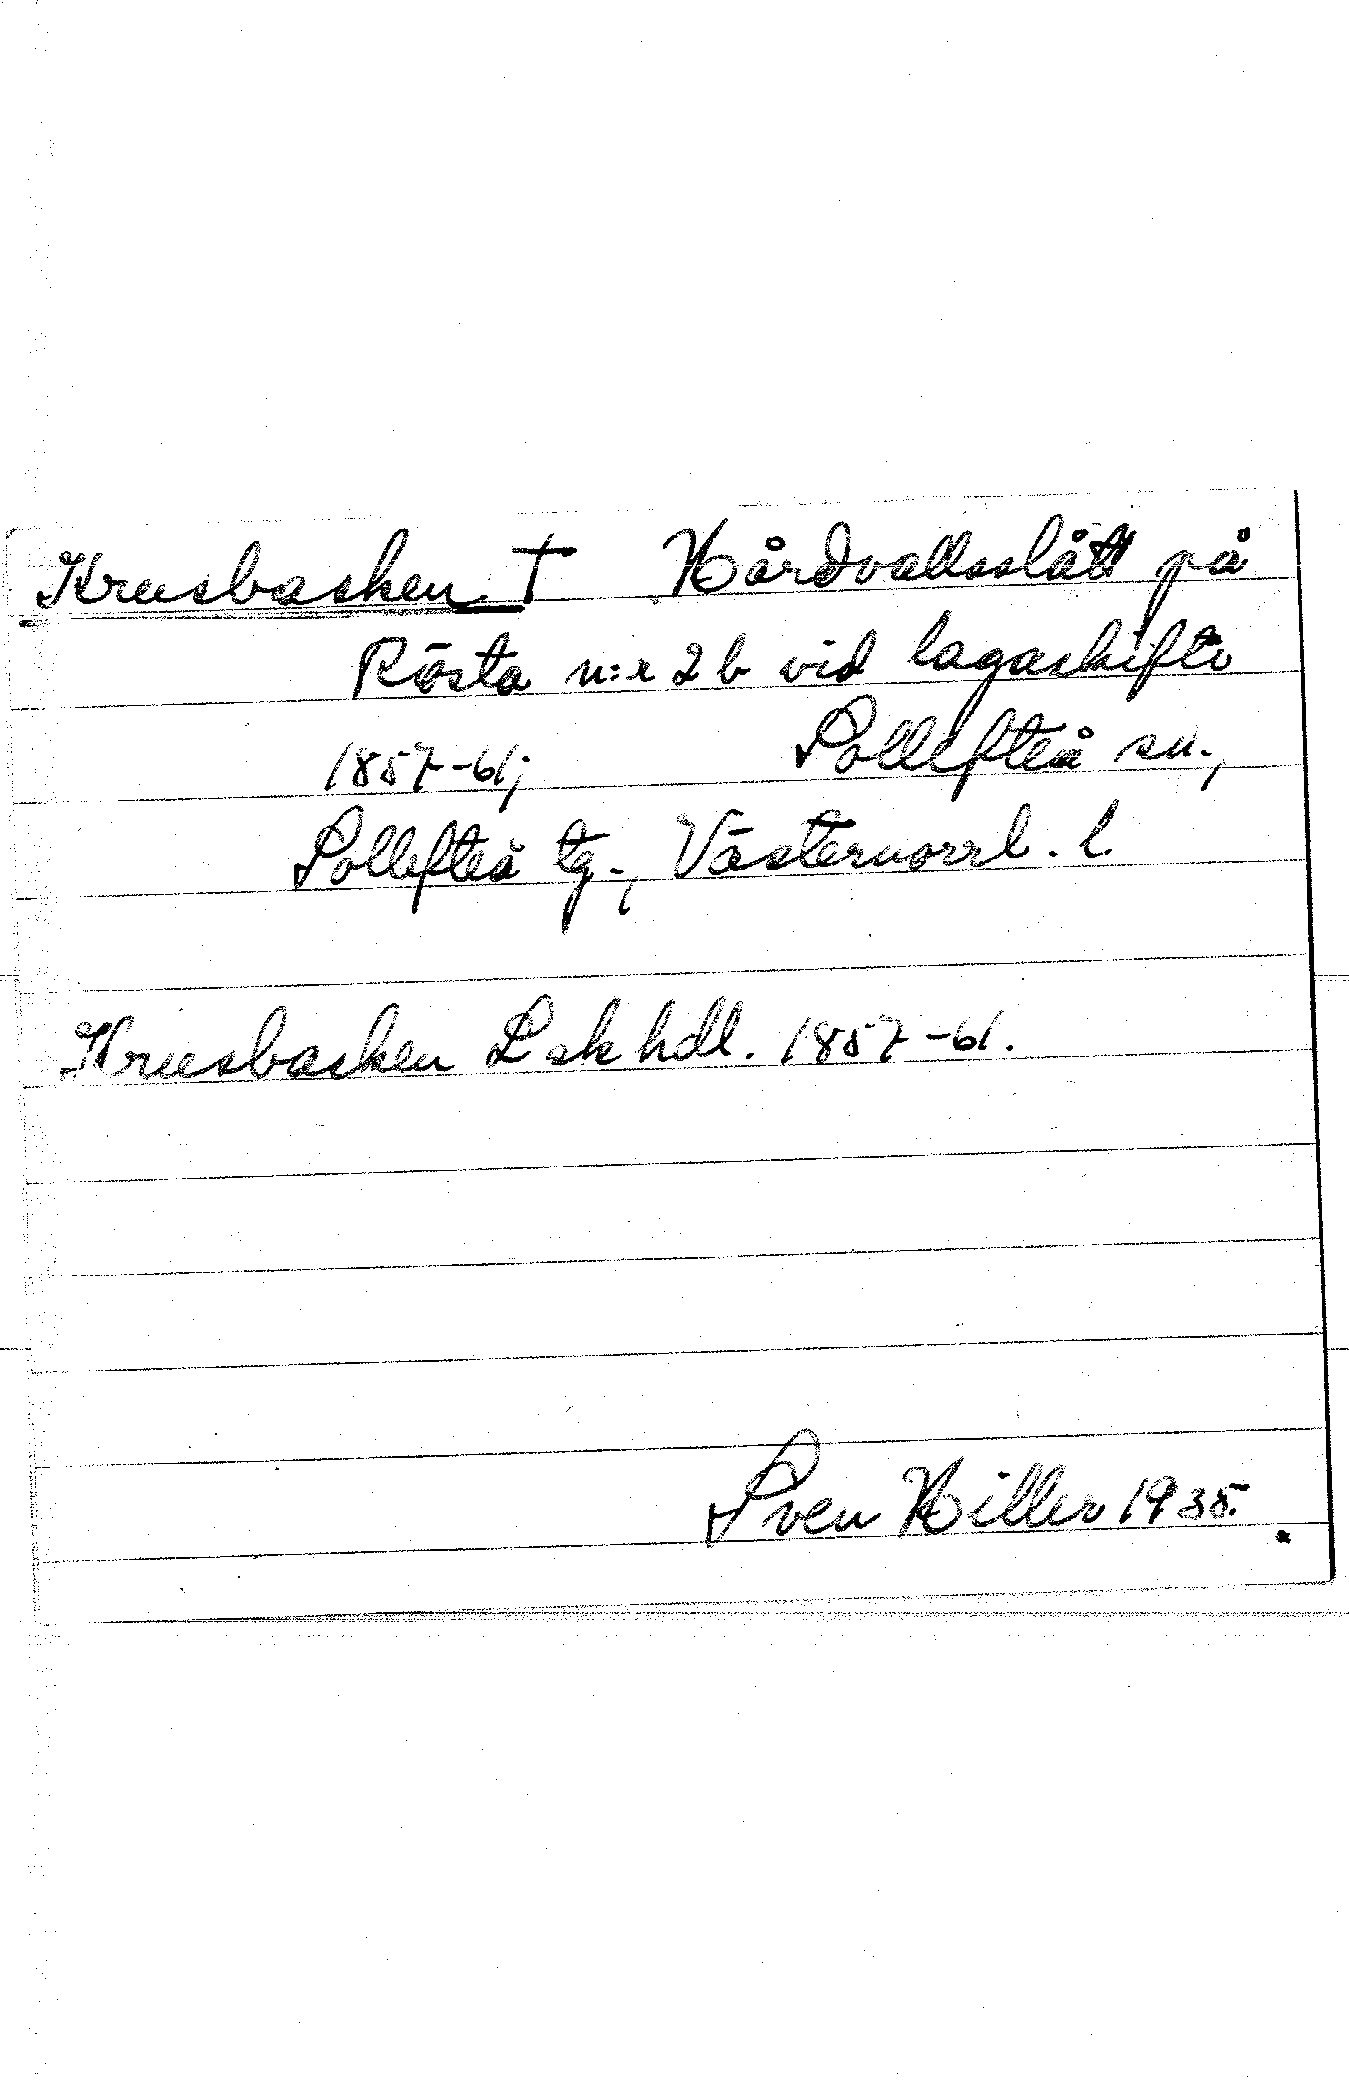 Krusbacken † Hårdvallsslått på
Rösta n:r 2 b vid lagaskifte
1857-61; Sollefteå sn.,
Sollefteå tg., Västernorrl. l.
Krusbacken Lsk hdl. 1857-61.
Sven Hiller 1935.